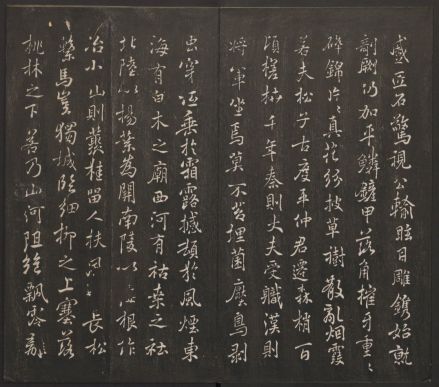 蹙匠石驚視公輸眩目雕鐫始就
剞劂仍加平鱗鏟甲落角摧牙重〻
碎錦片〻真花紛披草樹散亂烟霞
若夫松子古度平仲君遷森梢百
頃槎枿千年秦則大夫受職漢則
將軍坐焉莫不苔埋菌壓鳥剝
虫穿低垂於霜露撼頓於風煙東
海有白木之廟西河有枯桑之社
北陸以楊葉為關南陵以梅根作
冶小山則叢桂留人扶風則長松
繫馬豈獨城臨細柳之上塞落
桃林之下若乃山河阻絕飄零離